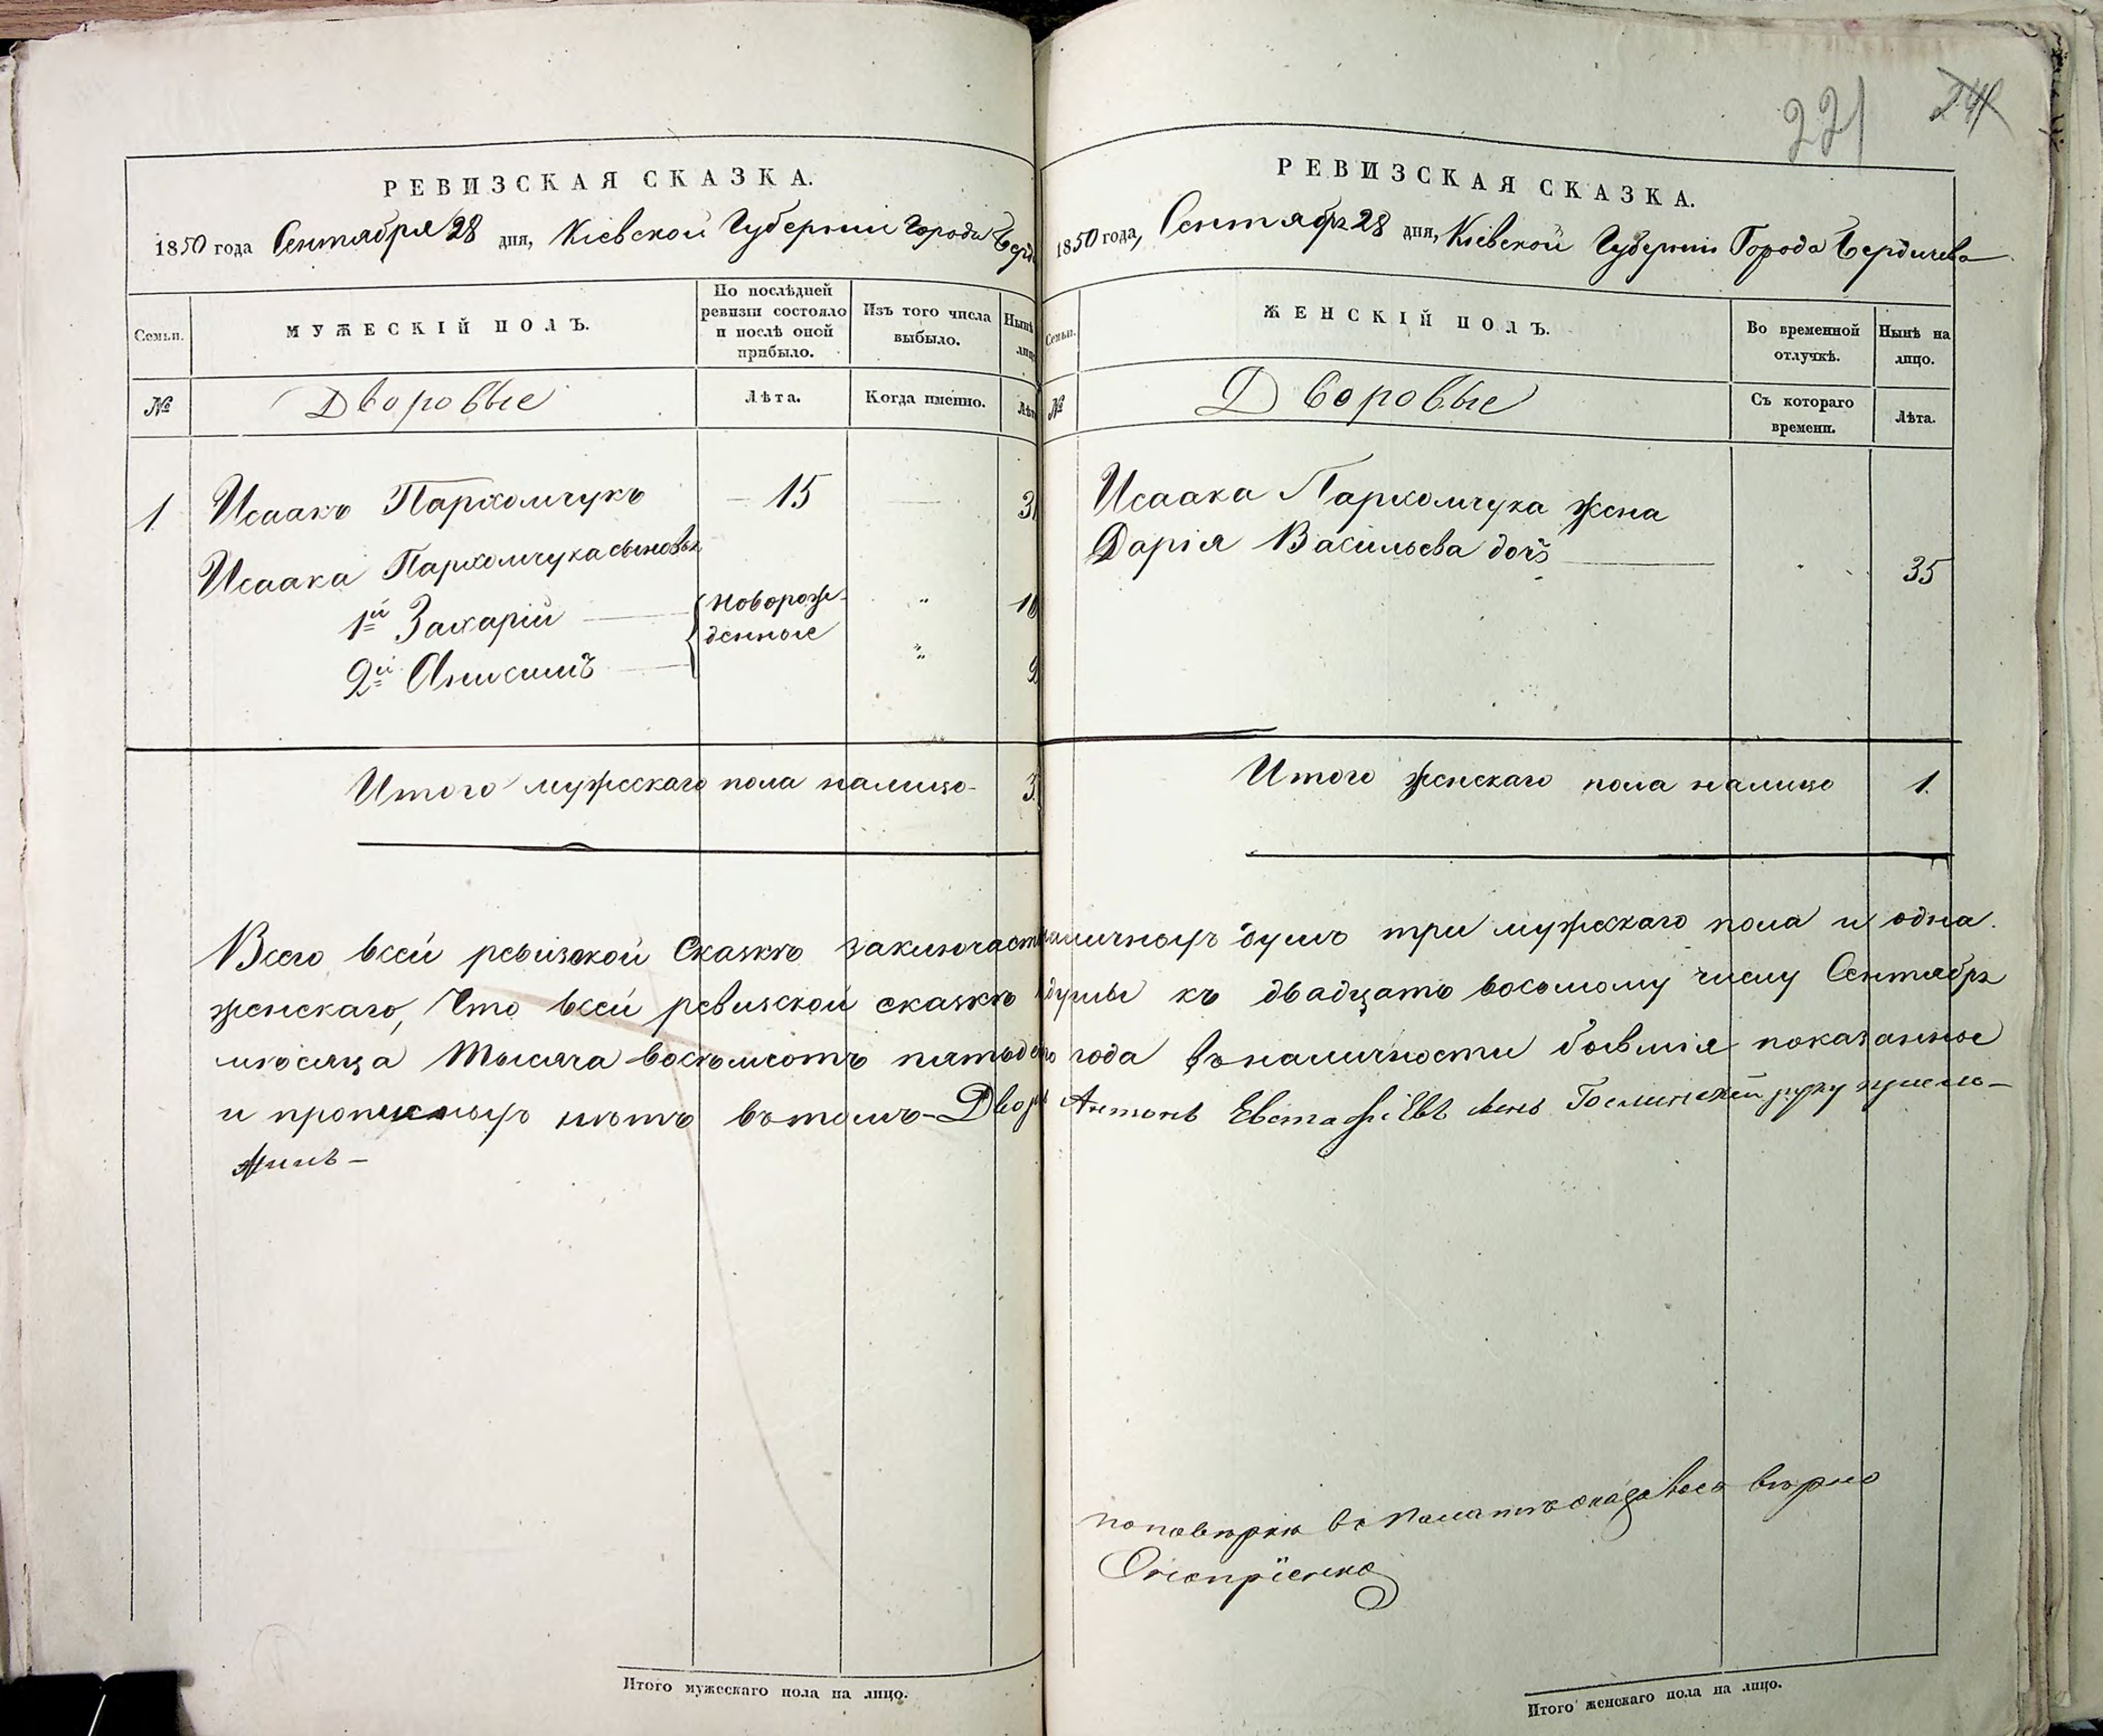 РЕВИЗСКАЯ СКАЗКА.
1850 года Сентября 28 дня, Кіевской Губерніи Города Берд
Семьи.
МУЖЕСКІЙ ПОЛЪ.
По послѣдней ревизіи состояло и послѣ оной прибыло.
Изъ того числа выбыло.
Нынѣ
№
Дворовые
Лѣта.
Когда именно.
Лѣт
1. Исаакъ Пархомчукъ 15 31
Исаака Пархомчука сыновья
1й Захарій новорож- 10
денные
2й Анисимъ 9
Итого мужескаго пола налицо 3
Всего всей ревизской Сказкѣ заключает
женскаго, Что всей ревизской сказкѣ
мѣсяца тысяча восѣмсотъ пятьде
и прописныхъ нѣтъ вътомъ Двор
Янинъ
Итого мужескаго пола на лицо.
221
РЕВИЗСКАЯ СКАЗКА.
1850 года, Сентября 28 дня, Кіевской Губерніи Города Бердичева
Семьи.
ЖЕНСКІЙ ПОЛЪ.
Во временной отлучкѣ.
Нынѣ на лицо.
№
Дворовые
Съ котораго времени.
Лѣта.
Исаака Пархомчука жена
Дарія Васильева дочь 35
Итого женскаго пола налицо 1.
наличныхъ душъ три мужескаго пола и одна
душы къ двадцать восьмому числу Сентября
го года вналичности бывшія показанные
Антонъ Евстафіевъ сынъ руку прило-
поповѣркѣ въ Палатѣ оказалось вѣрно
Итого женскаго пола на лицо.